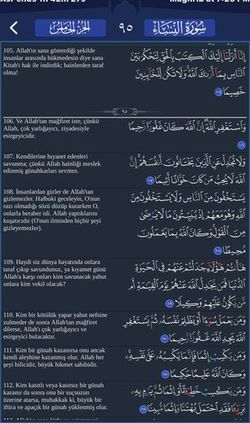 سُورَةُ النِّسَاء
٩٥
الجزء الخامس
105. Allah'ın sana gösterdiği şekilde
insanlar arasında hükmedesin diye sana
Kitab'ı hak ile indirdik; hainlerden taraf
olma!
إِنَّا أَنزَلْنَا إِلَيْكَ الْكِتَابَ بِالْحَقِّ لِتَحْكُمَ بَيْنَ
النَّاسِ بِمَا أَرَاكَ اللَّهُ وَلَا تَكُن لِّلْخَائِنِينَ
خَصِيمًا
٩٥
106. Ve Allah'tan mağfiret iste, çünkü
Allah, çok yarlığayıcı, ziyadesiyle
esirgeyicidir.
وَاسْتَغْفِرِ اللَّهَ إِنَّ اللَّهَ كَانَ غَفُورًا رَّحِيمًا
107. Kendilerine hıyanet edenleri
savunma; çünkü Allah hainliği meslek
edinmiş günahkârı sevmez.
وَلَا تُجَادِلْ عَنِ الَّذِينَ يَخْتَانُونَ أَنفُسَهُمْ إِنَّ
اللَّهَ لَا يُحِبُّ مَن كَانَ خَوَّانًا أَثِيمًا
108. İnsanlardan gizler de Allah'tan
gizlemezler. Halbuki geceleyin, O'nun
razı olmadığı sözü düzüp kurarken O,
onlarla beraber idi. Allah yaptıklarını
kuşatıcıdır (O'nun ilminden hiçbir şeyi
gizleyemezler).
يَسْتَخْفُونَ مِنَ النَّاسِ وَلَا يَسْتَخْفُونَ مِنَ
اللَّهِ وَهُوَ مَعَهُمْ إِذْ يُبَيِّتُونَ مَا لَا يَرْضَىٰ
مِنَ الْقَوْلِ وَكَانَ اللَّهُ بِمَا يَعْمَلُونَ
مُحِيطًا
109. Haydi siz dünya hayatında onlara
taraf çıkıp savundunuz, ya kıyamet günü
Allah'a karşı onları kim savunacak yahut
onlara kim vekil olacak?
هَا أَنتُمْ هَٰؤُلَاءِ جَادَلْتُمْ عَنْهُمْ فِي الْحَيَاةِ
الدُّنْيَا فَمَن يُجَادِلُ اللَّهَ عَنْهُمْ يَوْمَ الْقِيَامَةِ أَم
مَّن يَكُونُ عَلَيْهِمْ وَكِيلًا
110. Kim bir kötülük yapar yahut nefsine
zulmeder de sonra Allah'tan mağfiret
dilerse, Allah'ı çok yarlığayıcı ve
esirgeyici bulacaktır.
وَمَن يَعْمَلْ سُوءًا أَوْ يَظْلِمْ نَفْسَهُ ثُمَّ يَسْتَغْفِرِ
اللَّهَ يَجِدِ اللَّهَ غَفُورًا رَّحِيمًا
111. Kim bir günah kazanırsa onu ancak
kendi aleyhine kazanmış olur. Allah her
şeyi bilicidir, büyük hikmet sahibidir.
وَمَن يَكْسِبْ إِثْمًا فَإِنَّمَا يَكْسِبُهُ عَلَىٰ نَفْسِهِ
وَكَانَ اللَّهُ عَلِيمًا حَكِيمًا
112. Kim kasıtlı veya kasıtsız bir günah
kazanır da sonra onu bir suçsuzun
üzerine atarsa, muhakkak ki, büyük bir
iftira ve apaçık bir günah yüklenmiş olur.
وَمَن يَكْسِبْ خَطِيئَةً أَوْ إِثْمًا ثُمَّ يَرْمِ بِهِ
بَرِيئًا فَقَدِ احْتَمَلَ بُهْتَانًا وَإِثْمًا مُّبِينًا